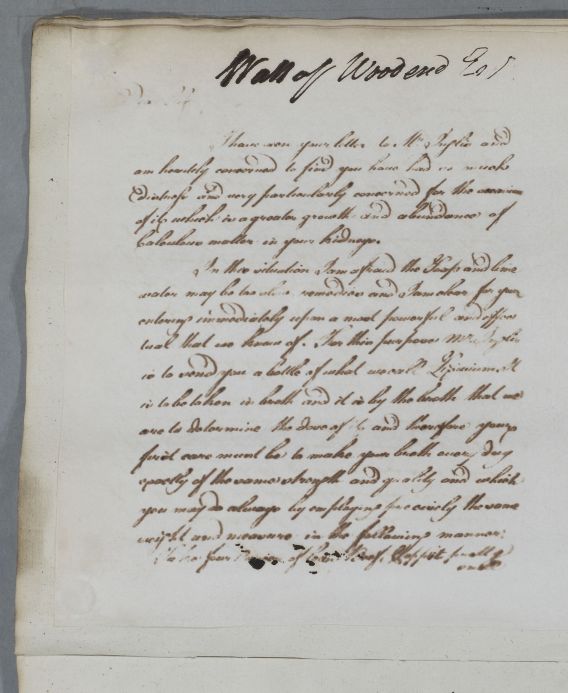 Wall of Woodend Esqr
Dear Sir
I have seen your letter to Mr Inglis and
am heartily concerned to find you have had so much
distress and very particularly concerned for the occasion
of it, which is a greater growth and abundance of
Calculous matter in your kidneys.
In this situation I am afraid the Soap and lime
water may be too slow remedies and I am clear for your
entering immediately upon a most powerful and effec
tual that we know of. For this purpose Mr Inglis
is to send you a bottle of what we call Lixivium. It
is to be taken in broth and it is by the broth that we
are to determine the dose of it and therefore your
first care must be to make your broth every day
exactly of the same strength and quality and which
you may do always by employing precisely the same
weight and measure in the following manner:
Take four of lean Beef. Chop it small &